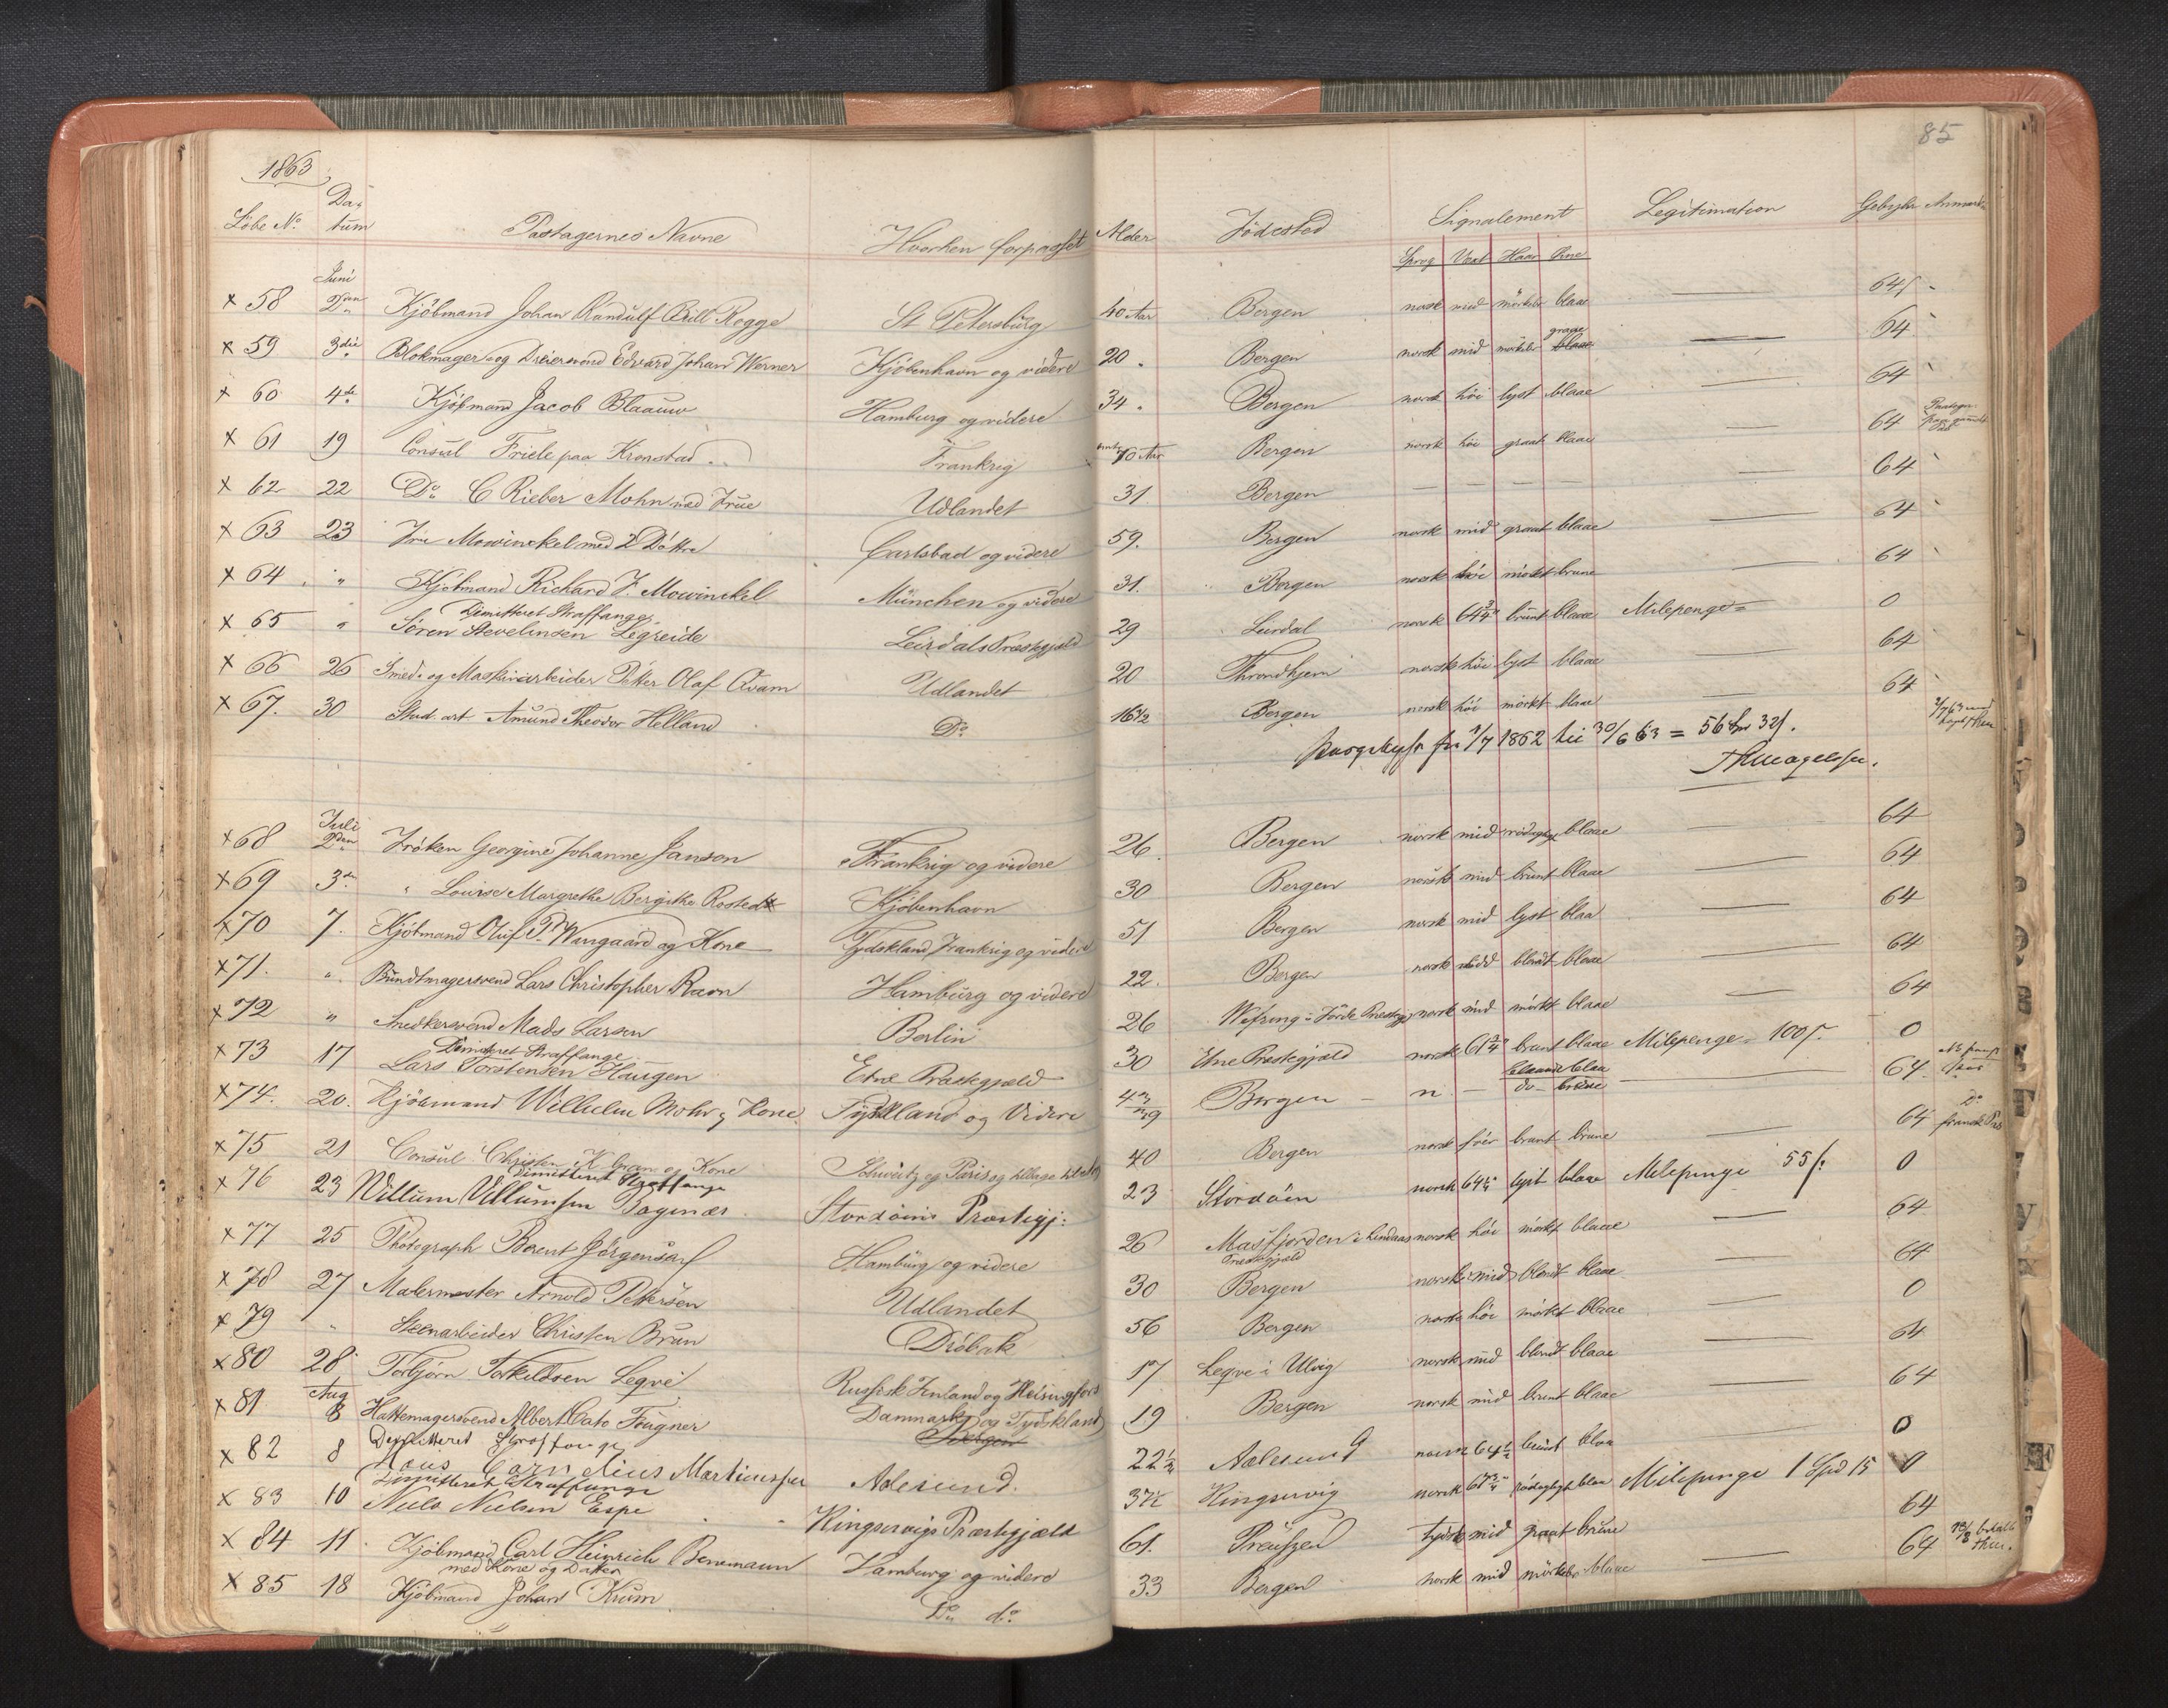 1863
85
Löbe No. Datum Pastagernes Navne Hvorhen forpasset Alder Födested Signalement Legitimation Gebyhr Anmærk
Sprog Vext Haar Öine
Juni
x 58 2den Kjöbmand Johan Randulf Bull Rogge St Petersburg 40 Aar Bergen norsk mid mörkebr blaae — 64
graae
x 59 3die Blokmager og Dreiersvend Edvard Johan Werner Kjöbenhavn og videre 20 Bergen norsk mid mörkebr blaae — 64
x 60 4de Kjöbmand Jacob Blaauw Hamburg og videre 34 Bergen norsk höi lyst blaae — 64
x 61 19 Consul Friele paa Kronstad Frankrig 70 Aar Bergen norsk höi graat blaae — 64
x 62 22 Do C Rieber Mohn med Frue Udlandet 31 Bergen — — — — 64
x 63 23 Fru Mowinckel med 2 Döttre Carlsbad og videre 59. Bergen norsk mid graat blaae — 64
x 64 " Kjöbmand Richard F. Mowinckel München og videre 31. Bergen norsk höi mörkt brune — 64
Dimitteret Straffange
x 65 " Sören Stevelinsen Legreide Leirdals Præstegjæld 29 Leirdal norsk 64¾" brunt blaae Milepenge = 0
x 66 26 Smed- og Maskinarbeider Petter Olaf Qvam Udlandet 20 Throndhjem norsk höi lyst blaae 64
x 67. 30 Stud. art Amund Theodor Helland Do 16½ Bergen norsk höi mörkt blaae — 64
fra 1/7 1862 til 30/6 63 = 56 32
Juli
x 68 2den Fröken Georgine Johanne Janson Frankrig og videre 26. Bergen norsk mid blaae — 64
x 69 3die " Louise Margrethe Bergitte Rosted Kjöbenhavn 30 Bergen norsk mid brunt blaae — 64
x 70 7. Kjöbmand Oluf P. Wangaard og Kone Tydskland, Frankrig og videre 51 Bergen norsk mid lyst blaa — 64
x 71. " Bundtmagersvend Lars Christopher Ravn Hamburg og videre 22. Bergen norsk midd blondt blaae — 64
x 72 " Snedkersvend Mads Larsen Berlin 26 i Förde Præstegj norsk mid mörkt blaae — 64
Dimitteret Straffange
x 73 17 Lars Torstensen Haugen Etne Præstegjæld 30 Etne Præstegjæld norsk 61¾" brunt blaae Milepenge = 100 0
x 74. 20. Kjöbmand Wilhelm Mohr og Kone Tydskland og Videre Bergen — n — blonde blaa — 64.
do brune
x 75 21 Consul Christen K Gran og Kone Schweitz og Paris og tilbage 40 Bergen norsk brunt brune — 64 fransk Pas
Dimitteret Straffange
x 76 23 Villum Villumsen Stordöens Præstegj: 23 Stordöen norsk lyst blaae Milepenge 55 0
x 77 25 Photograph Berent Jörgensen Hamburg og videre 26 Masfjorden i Lindaas norsk höi mörkt blaae — 64
Præstegjæld
x 78 27 Malermester Arnold Pettersen Udlandet 30 Bergen norsk mid blondt blaae — 64
x 79 " Steenarbeider Christen Brun Dröbak 56 Bergen norsk höi mörkt blaae — 0
x 80 28 Torbjörn Torkeldsen Legve Russisk Finland og Helsingfors 17 Leqve i Ulvig norsk mid blondt blaae — 64
Aug
x 81 8 Hattemagersvend Albert Cato Fougner Danmark og Tydskland 19 Bergen norsk mid brunt blaae — 64
Dimitteret Straffange Bergen
x 82 8 Cornelius Martinussen Aalesund. 22½ Aalesund norsk 64½ brunt blaa 0
Dimitteret Straffange
x 83 10 Niels Nielsen Espe Kingservigs Præstegjæld 37½ Kingservig norsk 67¾" rödagtigt blaa Milepenge 1 Spd 15 0
x 84 11 Kjöbmand Carl Heinrich Benemann Hamburg og videre 61. Preussen tydsk mid graat brune 64
med Kone og Datter
x 85 18 Kjöbmand Johan Krum Do do 33 Bergen norsk mid mörkebr blaae — 64